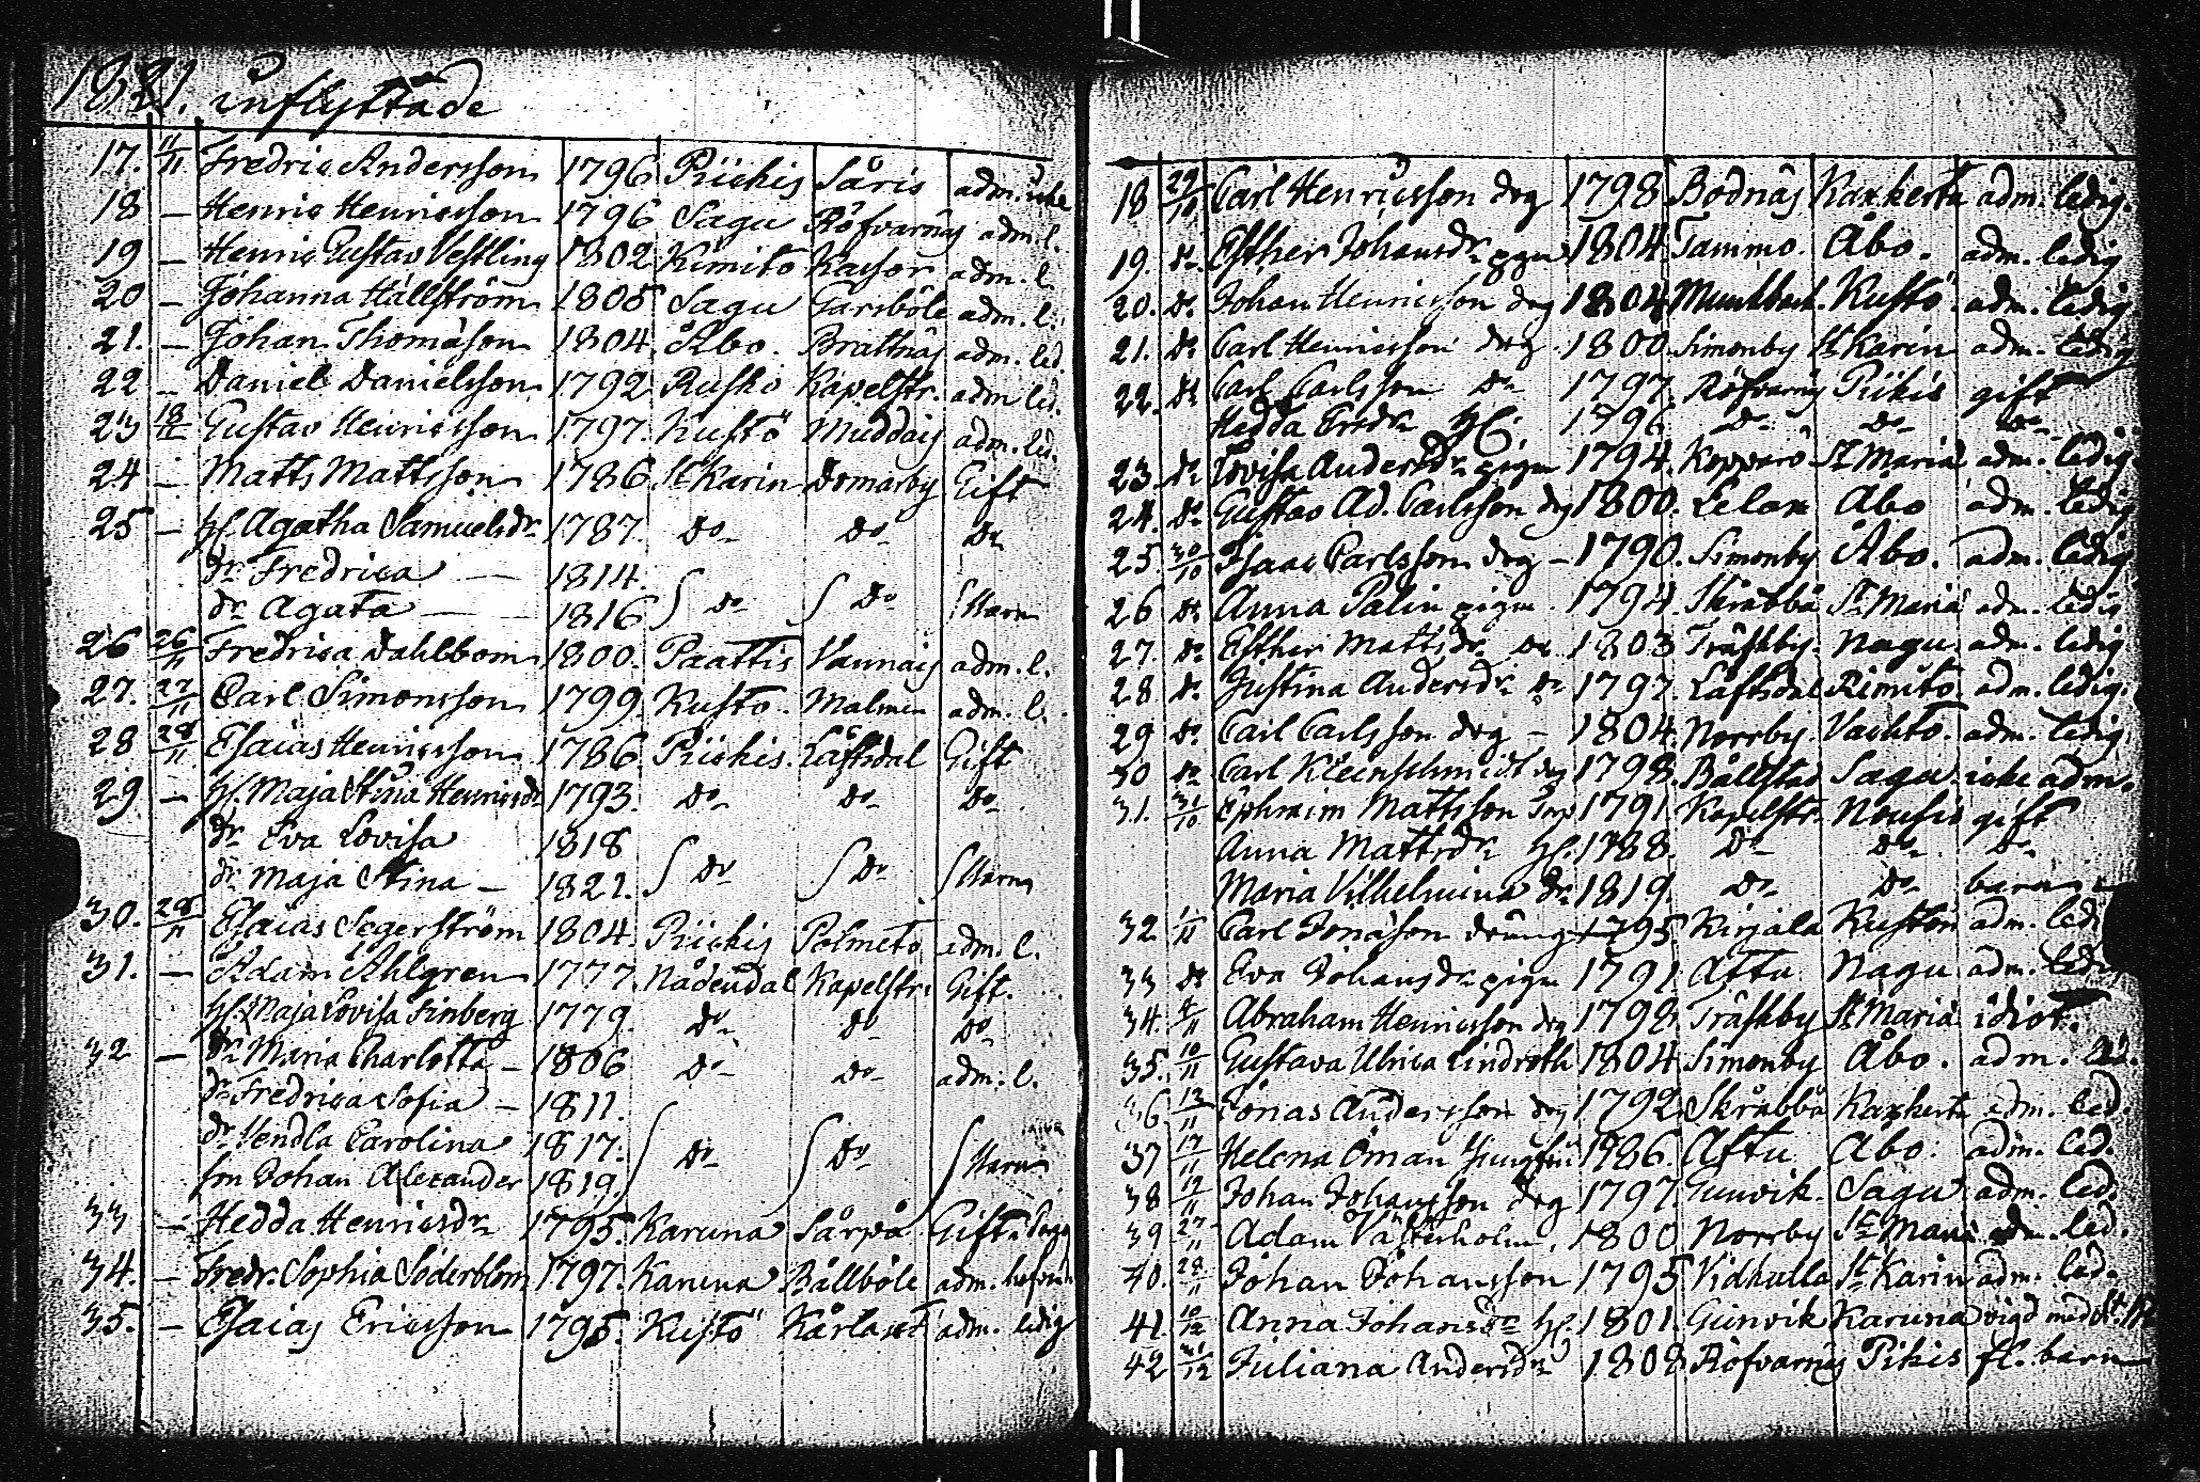 1821. inflyttade
17. 11/11 Fredric Andersson 1796 Piickis Såris adm. icke
18 — Henric Henricsson 1796 Sagu Röfvarnäs adm. l.
19 — Henric Gustav Vestling 1802 Kimito Kaisor adm. l.
20 — Johanna Hällström 1805 Sagu Garsböle adm. l.
21. — Johan Thomasson 1804. Åbo. Brattnäs adm. led.
22 — Daniel Danielsson 1792 Rusko Kapelstr. adm led.
23 Gustav Henricsson 1797. Kustö Muddais adm. led.
24 — Matts Mattsson 1786. St Karin Domarby Gift
25 — h. Agatha Samuelsdr 1787. do do do
dr Fredrica — 1814.
dr Agata — 1816 do do Barn
26 26/11 Fredrica Dahlbom 1800. Paattis Vannais adm. l.
27. 27/11 Carl Simonsson 1799. Kusto. Malmen adm. l.
28 28/11 Esaias Henricsson 1786. Piickis. Låftsdal Gift
29 — h. Maja Stina Henricsdr 1793. do do do
dr Eva Lovisa 1818
dr Maja Stina — 1821. do do Barn
30. 28/11 Esaias Segerström 1804. Piickis Polmeto adm. l.
31. — Adam Ahlgren 1777. Nådendal Kapelstr. Gift.
h. Maja Lovisa Finberg 1779. do do do
32 — dr Maria Charlotta — 1806 do do adm. l.
dr Fredrica Sofia — 1811.
dr Vendla Carolina 1817.
son Johan Alexander 1819. do do Barn
33 — Hedda Henricsdr 1795. Karuna Särpä Gift.
34. — Fredr. Sophia Söderblom 1797. Karuna Bällböle adm.
35. — Esaias Ericsson 1795. Kustö Kärlaxt adm. ledig
18 29/10 Carl Henricsson drg 1798 Bodnäs Kaxkerta adm. ledig.
19. do Esther Johansdr pgn 1804. Tammo. Åbo. adm. ledig
20. do Johan Henricsson drg 1804 Munkback. Kustö. adm. ledig
21. do Carl Henricsson drg. 1800. Simonby St Karin adm. ledig
22. do Carl Carlsson do 1797. Röfvarnäs Piikis gift
Hedda Ersdr h. 1796 do do do
23. do Lovisa Andersdr pign 1794. Kopparö St Maria adm. ledig.
24. do Gustav Ad. Carlsson drg 1800. Lelax Åbo adm. ledig
25. 30/10 Isaac Carlsson drg — 1790. Simonby Åbo. adm. ledig
26 do Anna Palin pign. 1794. Skräbbä St Maria adm. ledig
27. do Esther Mattsdr do 1803 Träskby. Nagu adm. ledig
28 do Justina Andersdr do 1797. Låftsdal Kimito. adm. ledig.
29 do Carl Carlsson drg — 1804. Norrby. Vachto. adm. ledig
30 do Carl Kleinschmidt drg 1798. Bällstad Sagu. icke adm.
31. 31/10 Ephraim Mattsson 1791. Kapelstr. Nousis gift
Anna Mattsdr h. 1788. do do do
Maria Vilhelmina dr 1819. do do barn
32 1/11 Carl Jonasson dräng 1795 Kirjala Kustön adm. ledi
33 do Eva Johansdr pign 1791 Attu Nagu adm. ledig
34. 4/11 Abraham Henricsson drg 1792. Träskby St Maria idiot.
35. 10/11 Gustava Ulrica Lindroth 1804 Simonby Åbo. adm. led.
36 13/11 Jonas Andersson drg 1792. Skräbbä Kaxkerta adm. led.
37 17/11 Helena Öman Jungfru 1786. Attu Åbo. adm. led.
38 19/11 Johan Johansson drg 1797. Gunvik. Sagu. adm. led.
39 27/11 Adam Västerholm. 1800 Norrby St Maria adm. led.
40. 28/11 Johan Johansson 1795 Vidhulla St Karin adm. led.
41. 10/12 Anna Johansdr h. 1801. Gunvik Karuna vigd med
42 31/12 Juliana Andersdr 1808 Röfvarnäs Pikis fl. barn